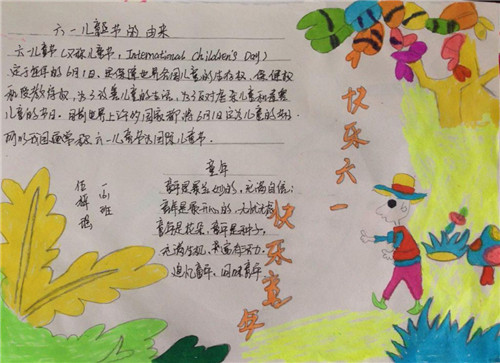 六一儿童节的由来
六一儿童节（又称儿童节，International Children's Day）
定于每年的6月1日，为保障世界各国儿童的生存权，保健权
和受教育权，为了改善儿童的生活，为了反对虐杀儿童和毒害
儿童的节日。目前世界上许多的国家都将6月1日定为儿童的节日
同时我国通常称六一儿童节为国际儿童节。
快乐六一
童年
童年是最美妙的，充满自信；
童年是最开心的，无忧无虑
童年是花朵，童年是种子，
充满生机，来富有活力。
追忆童年，回味童年
快乐童年